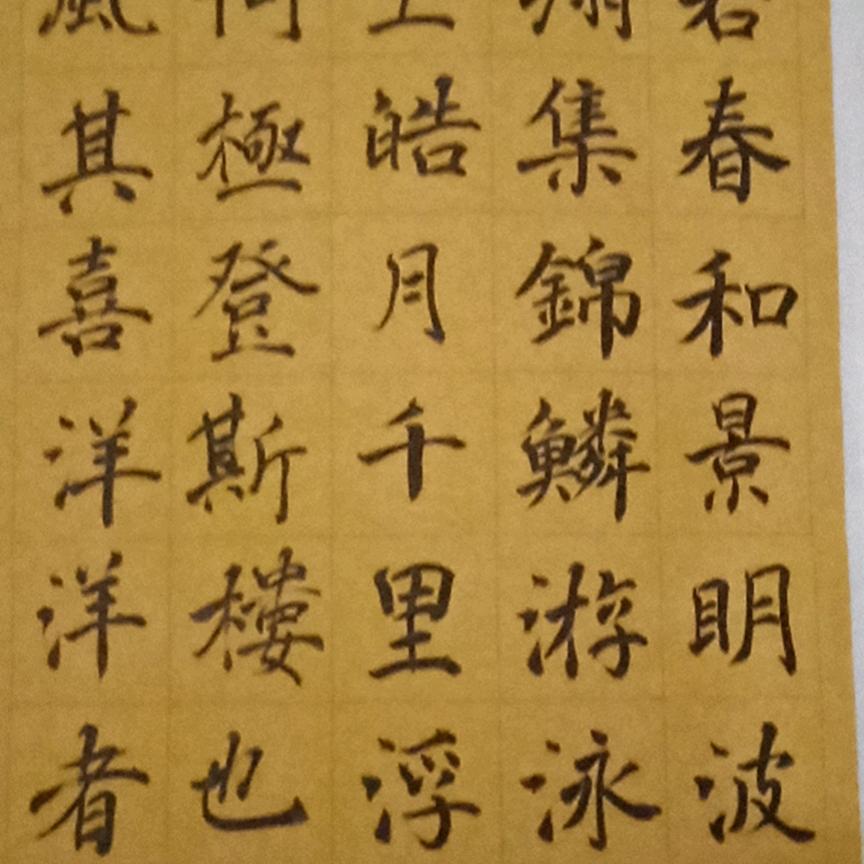 若春和景明波
翔集錦鱗游泳
空皓月千里浮
何極登斯樓也
風其喜洋洋者